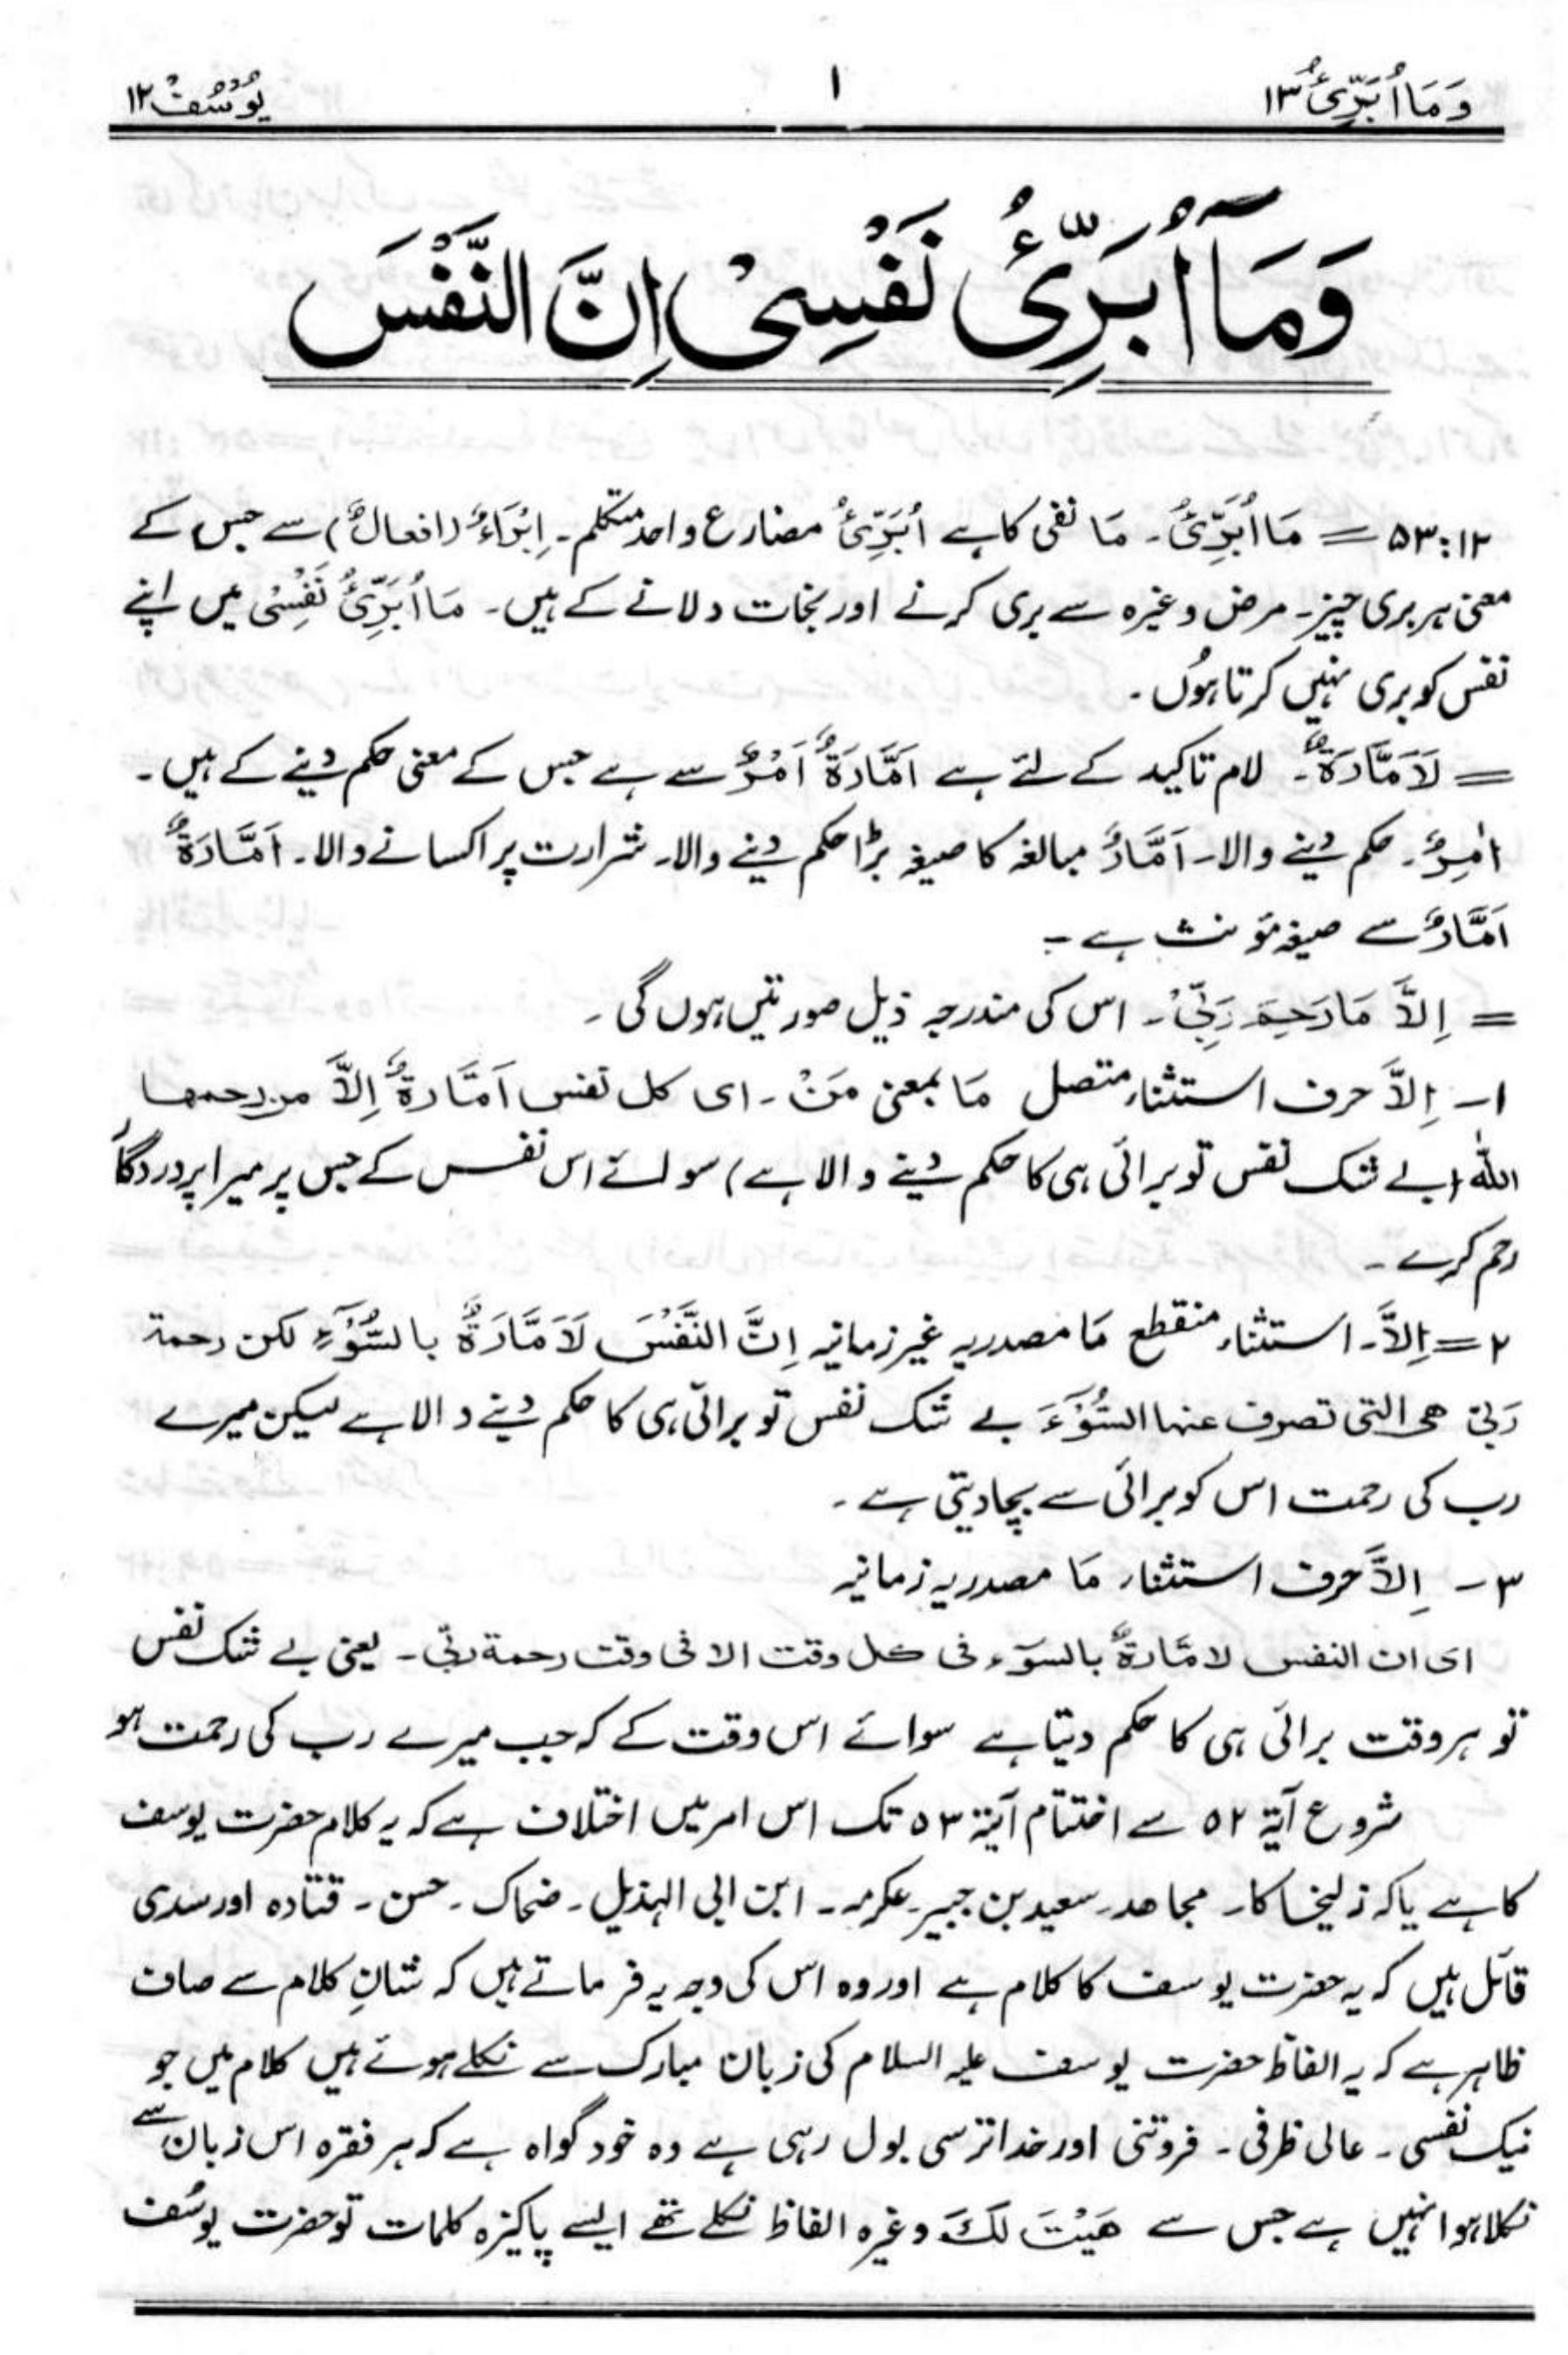 وَمَا اُبَرِّئُ ۱۳
۱
یُوْسُفْ ۱۲
وَمَآ اُبَرِّئُ نَفْسِیْ اِنَّ النَّفْسَ
۵۳:۱۲ = مَا اُبَرِّئُ۔ مَا نفی کا ہے اُبَرِّئُ مضارع واحد متکلم۔ اِبْرَاءٌ (افعالٌ) سے جس کے
معنی ہر بری چیز۔ مرض وغیرہ سے بری کرنے اور نجات دلانے کے ہیں۔ مَا اُبَرِّئُ نَفْسِیْ میں اپنے
نفس کو بری نہیں کرتا ہوں۔
= لَاَمَّارَۃٌ۔ لام تاکید کے لئے ہے اَمَّارَۃٌ اَمْرٌ سے ہے جس کے معنی حکم دینے کے ہیں۔
اٰمِرٌ۔ حکم دینے والا۔ اَمَّارٌ مبالغہ کا صیغہ بڑا حکم دینے والا۔ شرارت پر اکسانے والا۔ اَمَّارَۃٌ
اَمَّارٌ سے صیغہ مؤنث ہے۔
= اِلَّا مَا رَحِمَ رَبِّیْ۔ اس کی مندرجہ ذیل صورتیں ہوں گی۔
۱۔ اِلَّا حرف استثناء متصل مَا بمعنی مَنْ۔ ای کل نفس اَمَّارۃٌ اِلَّا من رحمھا
اللہ (بے شک نفس تو برائی ہی کا حکم دینے والا ہے) سوائے اس نفس کے جس پر میرا پروردگار
رحم کرے۔
۲ = اِلَّا۔ استثناء منقطع مَا مصدریہ غیر زمانیہ اِنَّ النَّفْسَ لَاَمَّارَۃٌ بِالسُّوْٓءِ لکن رحمۃ
رَبّی ھی التی تصرف عنہا السُّوْٓءَ بے شک نفس تو برائی ہی کا حکم دینے والا ہے لیکن میرے
رب کی رحمت اس کو برائی سے بچا دیتی ہے۔
۳۔ اِلَّا حرف استثناء مَا مصدریہ زمانیہ
ای ان النفس لامَّارۃٌ بالسوٓء فی کل وقت الا فی وقت رحمۃ ربّی۔ یعنی بے شک نفس
تو ہر وقت برائی ہی کا حکم دیتا ہے سوائے اس وقت کے کہ جب میرے رب کی رحمت ہو
شروع آیۃ ۵۲ سے اختتام آیۃ ۵۳ تک اس امر میں اختلاف ہے کہ یہ کلام حضرت یوسف
کا ہے یا کہ زلیخا کا۔ مجاھد۔ سعید بن جبیر۔ عکرمہ۔ ابن ابی الہذیل۔ ضحاک۔ حسن۔ قتادہ اور سدی
قائل ہیں کہ یہ حضرت یوسف کا کلام ہے اور وہ اس کی وجہ یہ فرماتے ہیں کہ شانِ کلام سے صاف
ظاہر ہے کہ یہ الفاظ حضرت یوسف علیہ السلام کی زبان مبارک سے نکلے ہوئے ہیں کلام میں جو
نیک نفسی۔ عالی ظرفی۔ فروتنی اور خدا ترسی بول رہی ہے وہ خود گواہ ہے کہ ہر فقرہ اس زبان سے
نکلا ہوا نہیں ہے جس سے ھَیْتَ لَکَ وغیرہ الفاظ نکلے تھے ایسے پاکیزہ کلمات تو حضرت یوسُف